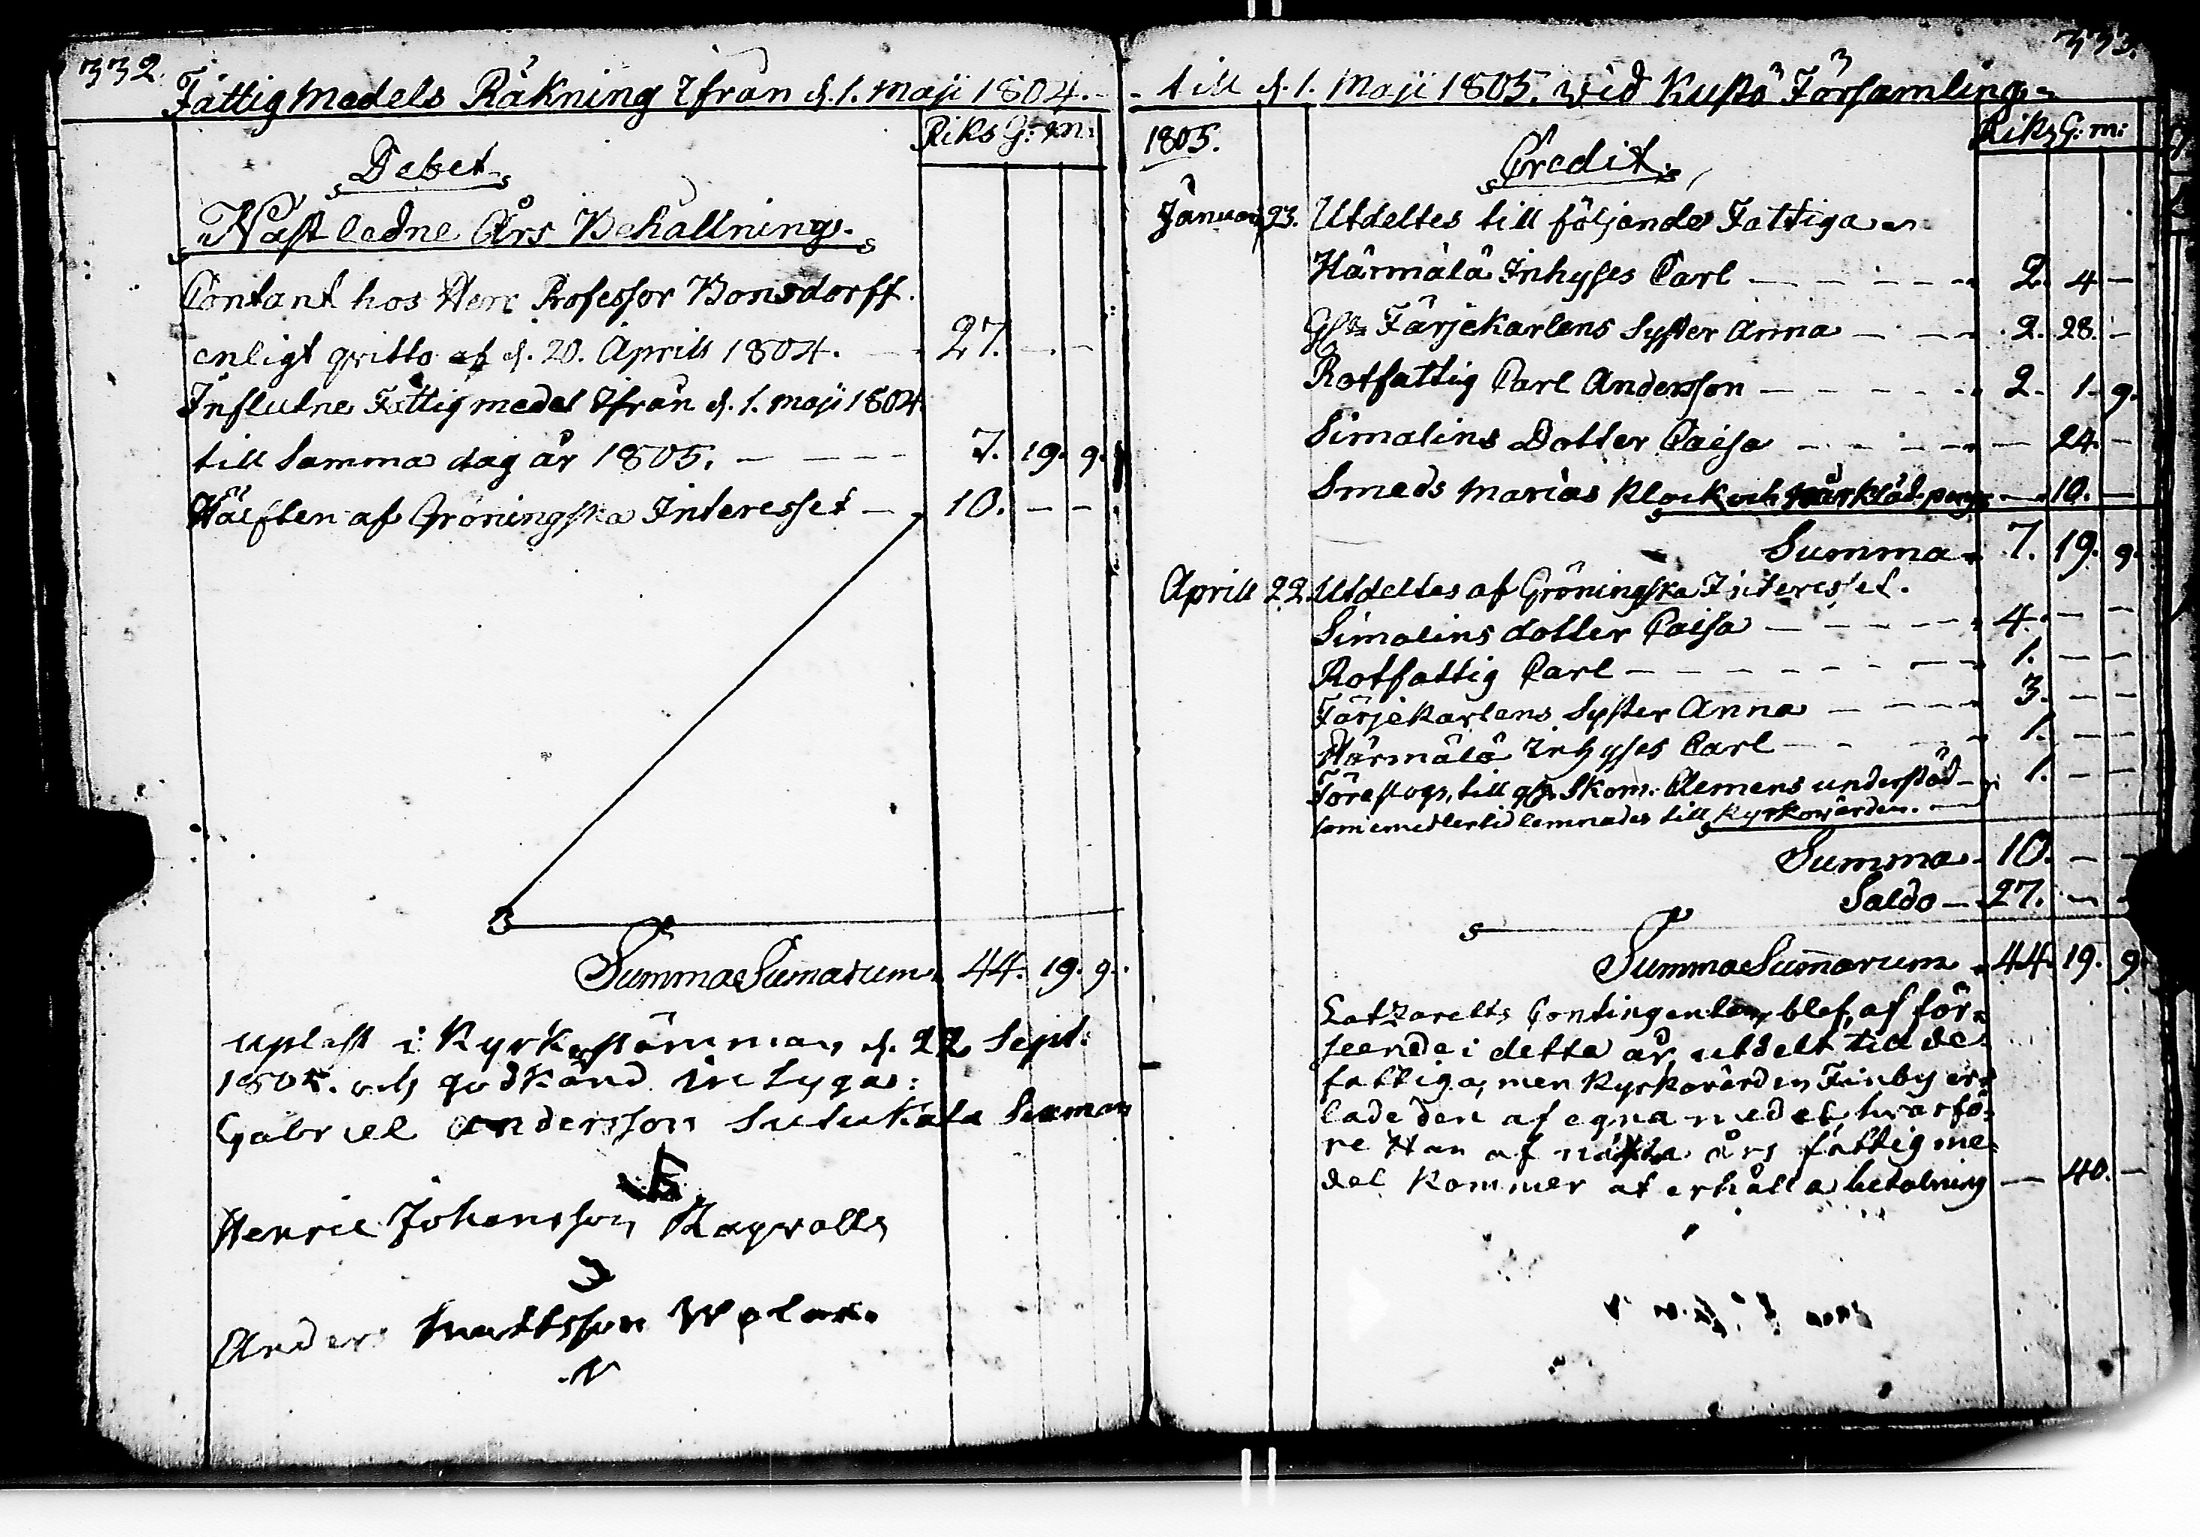 332.
Fattigmedels Räkning Ifrån d. 1. Maji 1804.
Riks G: m:
Debet
Näst ledne Års Behållning.
Contant hos Herr Professor Bonsdorff.
enligt qvitto af d. 20. Aprill 1804. — 27. — —
Influtne Fattigmedel Ifrån d. 1. Maji 1804
till Samma dag år 1805. — — — — 7. 19. 9.
Hälften af Gröningska Interesset — 10. — —
Summa Sumarum. 44. 19. 9.
Upläst i Kyrkostämman d. 22 Sept:
1805. och godkänd intyga:
Gabriel Andersson
Henric Johansson
Anders Mattsson
333.
till d. 1. Maji 1805. wid Kustö Församling
1805.
Riks G: m:
Credit.
Januari 23. Utdeltes till följande Fattiga
Härmälä Inhyses Carl — — — — — 2. 4 —
Färjekarlens Syster Anna — — — 2. 28. —
Rotfattig Carl Andersson — — — — — 2. 1. 9.
Simalins Dotter Caisa — — — — — 24. —
Smeds Marias Klock och — 10. —
Summa 7. 19. 9.
Aprill 22. Utdeltes af Gröningska Interesset.
Simalins dotter Caisa — — — — — 4. — —
Rotfattig Carl — — — — — — — 1. — —
Färjekarlens Syster Anna — — — — 3. — —
Härmälä Inhyses Carl — — — — 1. — —
Föreslogs, till Skom. Clemens understöd — 1. — —
som emedlertid lemnades till Kyrkowärden. —
Summa 10. — —
Saldo — 27. — —
Summa Sumarum 44. 19. 9.
Latzaretts Contingenten blef, af för=
seende i detta år utdelt till de
fattiga, men Kyrkovärden Finby er=
lade den af egna medel, hvarfö=
re Han af nästa års fattigme=
del kommer at erhålla betalning — 40. —